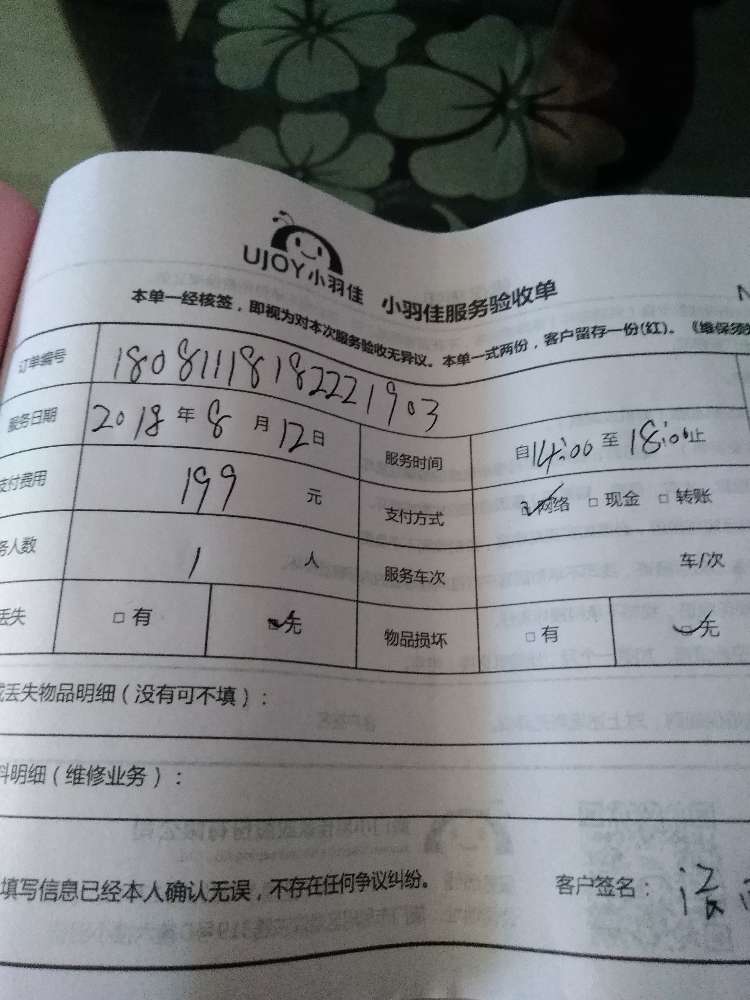 UJOY小羽佳 小羽佳服务验收单
本单一经核签，即视为对本次服务验收无异议。本单一式两份，客户留存一份(红)。《维保须
订单编号 18081118182221903
服务日期 2018年8月12日 服务时间 自14:00至18:00止
支付费用 199元 支付方式 网络 □现金 □转账
务人数 1人 服务车次 车/次
丢失 □有 无 物品损坏 □有 无
或丢失物品明细（没有可不填）：
料明细（维修业务）：
填写信息已经本人确认无误，不存在任何争议纠纷。 客户签名：